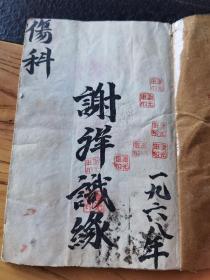 傷科
謝祥識緣
一九六八年